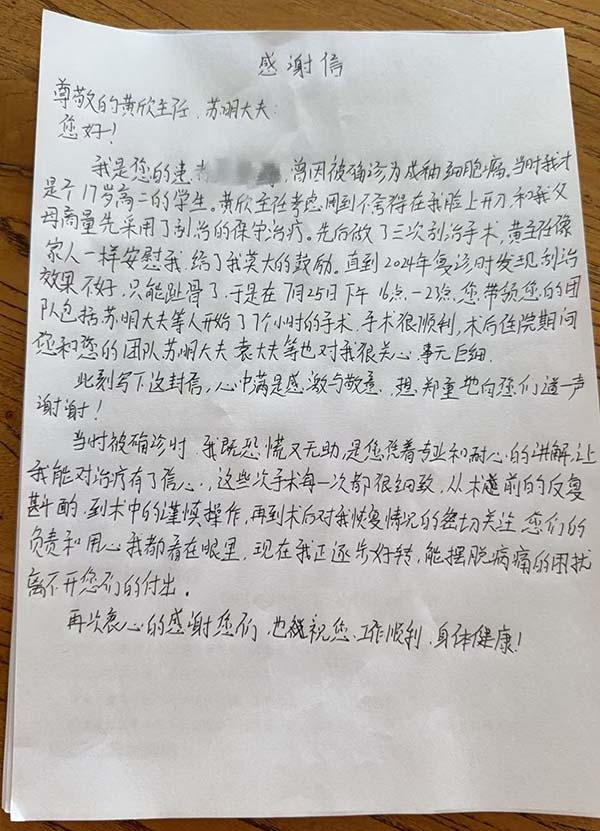 感谢信
尊敬的黄欣主任、苏明大夫：
您好！
我是您的患者，曾因被确诊为成釉细胞瘤。当时我才
是个17岁高二的学生。黄欣主任考虑周到不舍得在我脸上开刀，和我父
母商量先采用了刮治的保守治疗。先后做了三次刮治手术，黄主任像
家人一样安慰我，给了我莫大的鼓励。直到2024年复诊时发现刮治
效果不好，只能趾骨了，于是在7月25日下午16点-23点，您带领您的团
队包括苏明大夫等人开始了7个小时的手术，手术很顺利，术后住院期间
您和您的团队苏明大夫袁大夫等也对我很关心，事无巨细。
此刻写下这封信，心中满是感激与敬意，想郑重地向您们道一声
谢谢！
当时被确诊时，我既恐慌又无助，是您凭着专业和耐心的讲解，让
我能对治疗有了信心，这些次手术每一次都很细致，从术前的反复
斟酌，到术中的谨慎操作，再到术后对我恢复情况的密切关注，您们的
负责和用心我都看在眼里，现在我正逐步好转，能摆脱病痛的困扰
离不开您们的付出。
再次衷心的感谢您们，也祝您工作顺利，身体健康！